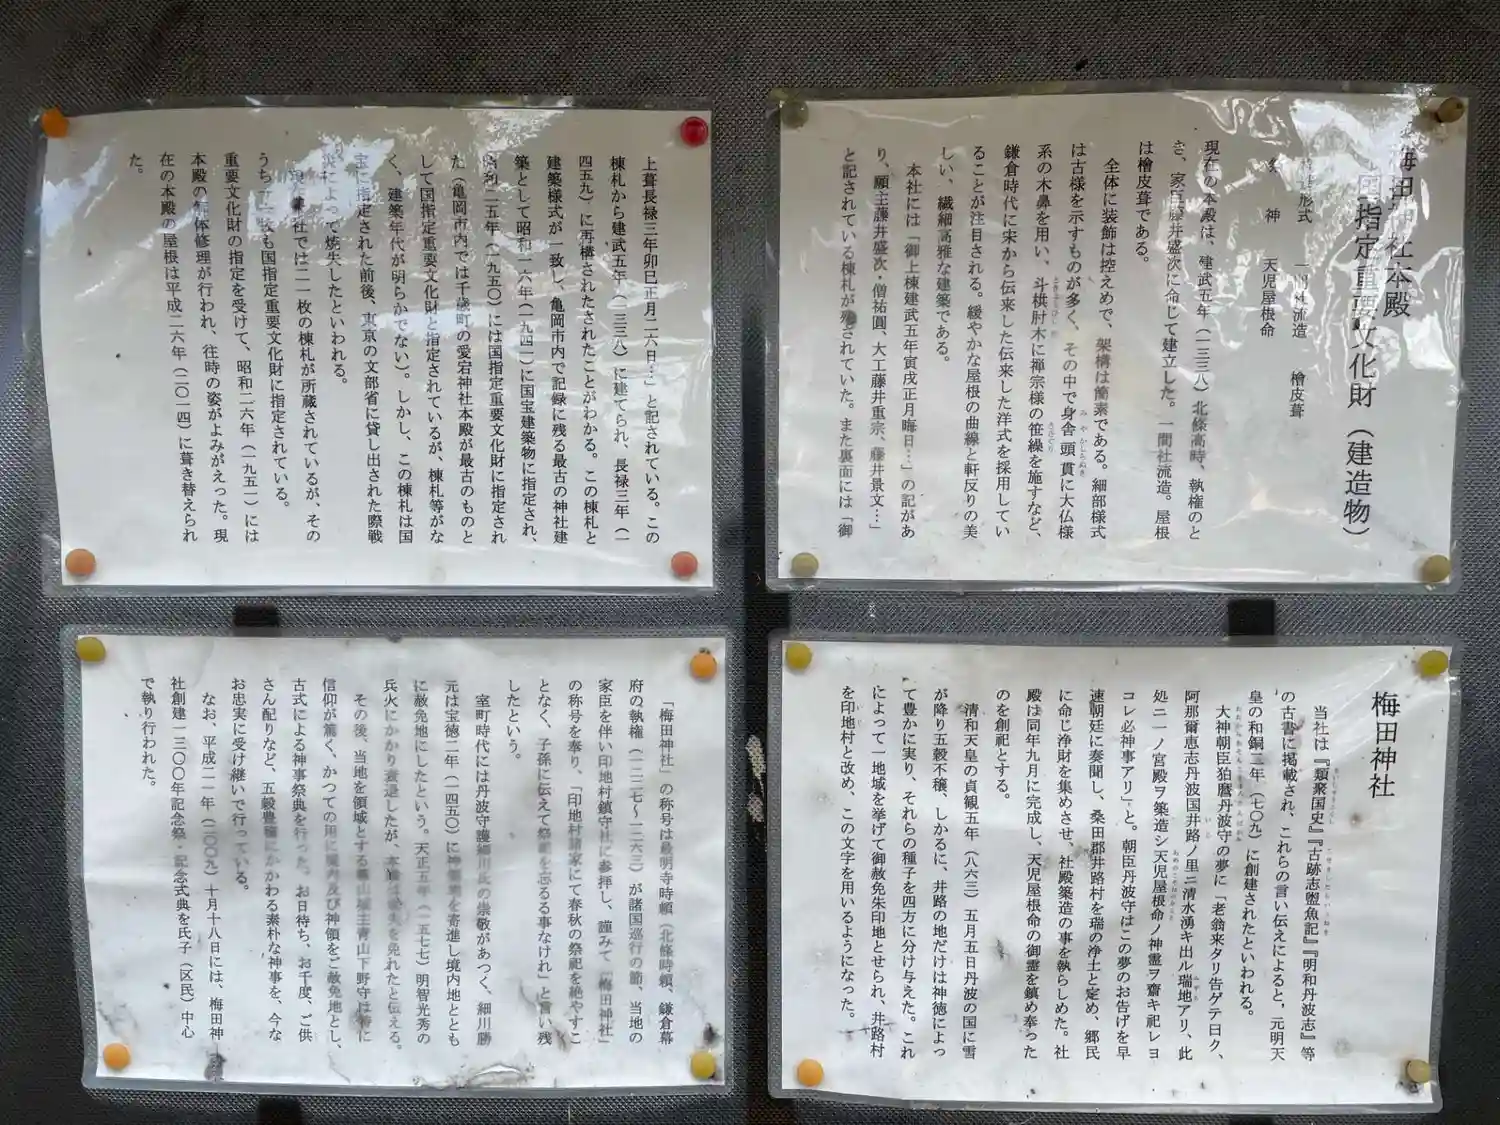 梅田神社本殿
国指定重要文化財（建造物）
形式　一間社流造　檜皮葺
神　天児屋根命
現在の本殿は、建武五年（一三三八）北條高時、執権のと
き、家臣藤井盛次に命じて建立した。一間社流造。屋根
は檜皮葺である。
全体に装飾は控えめで、架構は簡素である。細部様式
は古様を示すものが多く、その中で身舎頭貫に大仏様
系の木鼻を用い、斗栱肘木に禅宗様の笹繰を施すなど、
鎌倉時代に宋から伝来した伝来した洋式を採用してい
ることが注目される。緩やかな屋根の曲線と軒反りの美
しい、繊細高雅な建築である。
本社には「御上棟建武五年寅戌正月晦日…」の記があ
り、願主藤井盛次・僧祐圓、大工藤井重宗、藤井景文…」
と記されている棟札が残されていた。また裏面には「御
上葺長禄三年卯巳正月二六日…」と記されている。この
棟札から建武五年（一三三八）に建てられ、長禄三年（一
四五九）に再構されたされたことがわかる。この棟札と
建築様式が一致し、亀岡市内で記録に残る最古の神社建
築として昭和一六年（一九四一）に国宝建築物に指定され、
昭和二五年（一九五〇）には国指定重要文化財に指定され
た（亀岡市内では千歳町の愛宕神社本殿が最古のものと
して国指定重要文化財と指定されているが、棟札等がな
く、建築年代が明らかでない）。しかし、この棟札は国
宝に指定された前後、東京の文部省に貸し出された際戦
災によって焼失したといわれる。
現在、社では二一枚の棟札が所蔵されているが、その
うち一一枚も国指定重要文化財に指定されている。
重要文化財の指定を受けて、昭和二六年（一九五一）には
本殿の解体修理が行われ、往時の姿がよみがえった。現
在の本殿の屋根は平成二六年（二〇一四）に葺き替えられ
た。
梅田神社
当社は『類聚国史』『古跡志邇魚記』『明和丹波志』等
の古書に掲載され、これらの言い伝えによると、元明天
皇の和銅二年（七〇九）に創建されたといわれる。
大神朝臣狛麿丹波守の夢に「老翁来タリ告ゲテ日ク、
阿那爾恵志丹波国井路ノ里ニ清水湧キ出ル瑞地アリ、此
処ニ一ノ宮殿ヲ築造シ天児屋根命ノ神霊ヲ齋キ祀レヨ
コレ必神事アリ」と。朝臣丹波守はこの夢のお告げを早
速朝廷に奏聞し、桑田郡井路村を瑞の浄土と定め、郷民
に命じ浄財を集めさせ、社殿築造の事を執らしめた。社
殿は同年九月に完成し、天児屋根命の御霊を鎮め奉った
のを創祀とする。
清和天皇の貞観五年（八六三）五月五日丹波の国に雪
が降り五穀不穣、しかるに、井路の地だけは神徳によっ
て豊かに実り、それらの種子を四方に分け与えた。これ
によって一地域を挙げて御赦免朱印地とせられ、井路村
を印地村と改め、この文字を用いるようになった。
「梅田神社」の称号は最明寺時頼（北條時頼、鎌倉幕
府の執権（一二二七～一二六三）が諸国巡行の節、当地の
家臣を伴い印地村鎮守社に参拝し、謹みて「梅田神社」
の称号を奉り、「印地村諸家にて春秋の祭祀を絶やすこ
となく、子孫に伝えて祭祀を忘るる事なけれ」と言い残
したという。
室町時代には丹波守護細川氏の崇敬があつく、細川勝
元は宝徳二年（一四五〇）に神領地を寄進し境内地ととも
に赦免地にしたという。天正五年（一五七七）明智光秀の
兵火にかかり衰退したが、本殿は焼失を免れたと伝える。
その後、当地を領域とする亀山城主青山下野守は特に
信仰が篤く、かつての用に境内及び神領をご赦免地とし、
古式による神事祭典を行った。お日待ち、お千度、ご供
さん配りなど、五穀豊穣にかかわる素朴な神事を、今な
お忠実に受け継いで行っている。
なお、平成二一年（二〇〇九）十月十八日には、梅田神
社創建一三〇〇年記念祭・記念式典を氏子（区民）中心
で執り行われた。